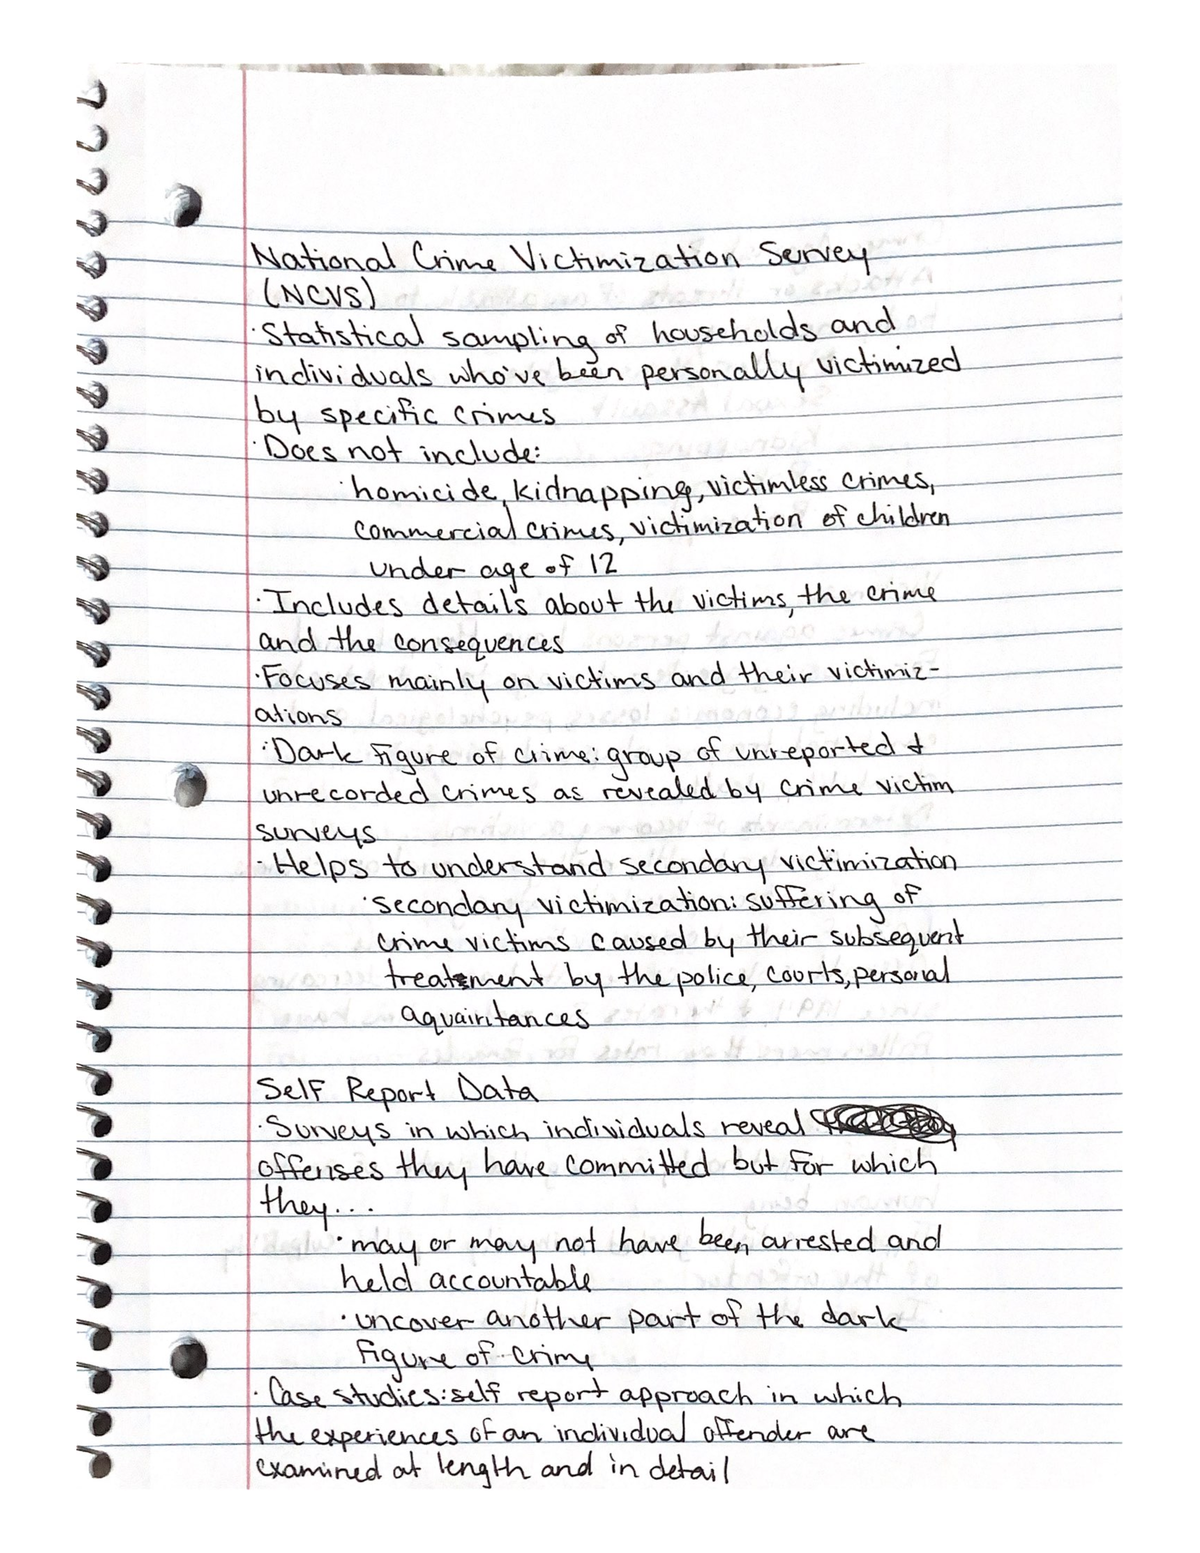 National Crime Victimization Survey
(NCVS)
·Statistical sampling of households and
individuals who've been personally victimized
by specific crimes
·Does not include:
·homicide, kidnapping, victimless crimes,
commercial crimes, victimization of children
under age of 12
·Includes details about the victims, the crime
and the consequences
·Focuses mainly on victims and their victimiz-
ations
·Dark figure of crime: group of unreported &
unrecorded crimes as revealed by crime victim
surveys
·Helps to understand secondary victimization
·secondary victimization: suffering of
crime victims caused by their subsequent
treatment by the police, courts, personal
aquaintances
Self Report Data
·Surveys in which individuals reveal
offenses they have committed but for which
they...
·may or may not have been arrested and
held accountable
·uncover another part of the dark
figure of crime
·Case studies: self report approach in which
the experiences of an individual offender are
examined at length and in detail